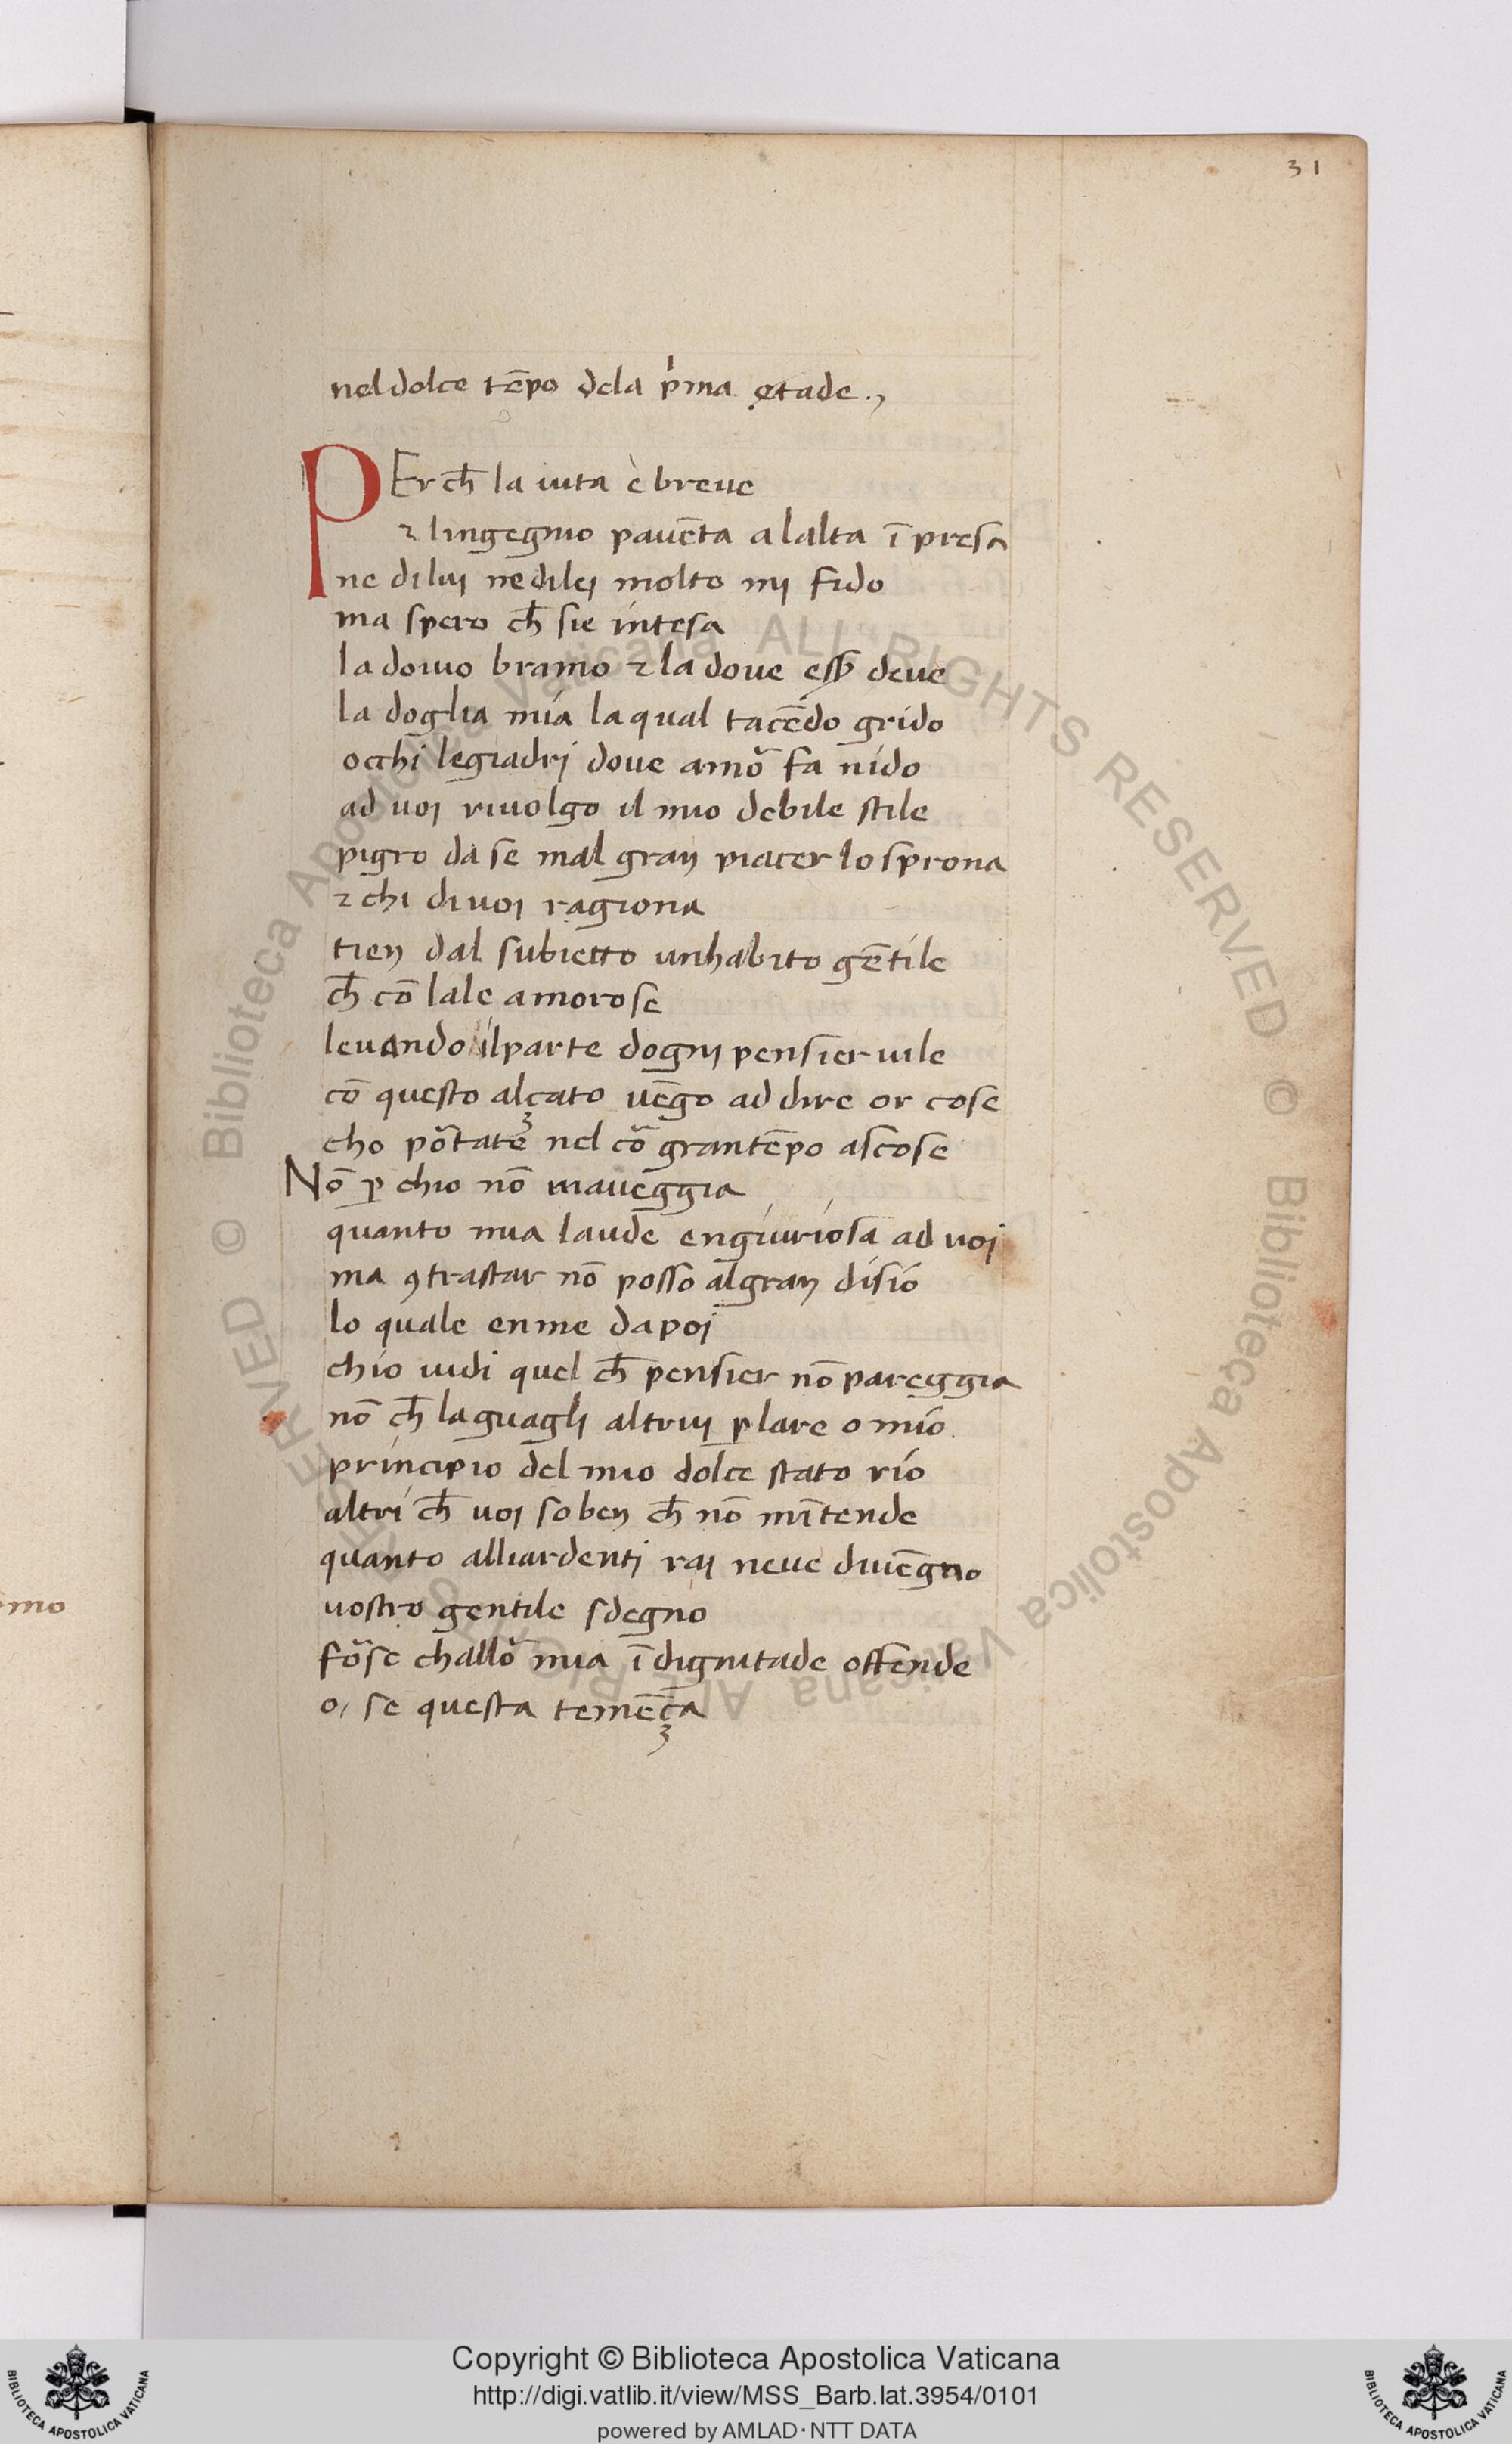 31
nel dolce tēpo dela p̍ma ętade.,
PErch̄ la uita è breue
⁊ lingegnio pauēta alalta ī presa
ne di luj ne di lej molto mj fido
ma spero ch̄ sie intesa
la douio bramo ⁊ la doue eſſ̄ deue
la doglia mia laqual tacēdo grido
occhi legiadrj doue amō fa nido
ad uoj riuolgo il mio debile stile
pigro da se mal gran piacer lo sprona
⁊ chi di uoj ragiona
tien dal subietto unhabito gētile
ch̄ cō lale amorose
leuando ilparte dognj pensier uile
cō questo alçato uēgo ad dire or cose
cho pōtate nel cō gran tēpo ascose
Nō ꝑ chio nō maueggia
quanto mia laude engiuriosa ad uoj
ma ꝯtrastar nō posso algran disio
lo quale enme dapoj
chio uidi quel ch̄ pensier nō pareggia
nō ch̄ laguaglj altruj ꝑlare o mio
principio del mio dolce stato rio
altri ch̄ uoj so ben ch̄ nō mītende
quanto alliardentj raj neue diuēgno
uostro gentile sdegno
fōse challō mia īdignitade offende
o, se questa temēça
mo
Biblioteca Apostolica Vaticana ALL RIGHTS RESERVED ©
Biblioteca Apostolica Vaticana ALL RIGHTS RESERVED ©
Copyright © Biblioteca Apostolica Vaticana
http://digi.vatlib.it/view/MSS_Barb.lat.3954/0101
powered by AMLAD·NTT DATA
BIBLIOTECA APOSTOLICA VATICANA
BIBLIOTECA APOSTOLICA VATICANA